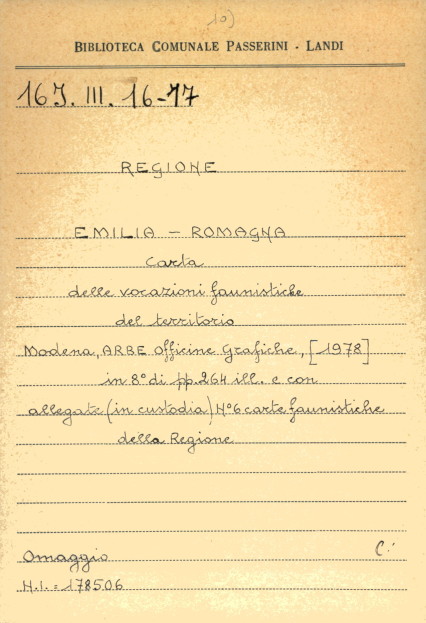 10)
BIBLIOTECA COMUNALE PASSERINI - LANDI
16J. III. 16-17
REGIONE
EMILIA - ROMAGNA
Carta
delle vocazioni faunistiche
del territorio
Modena, ARBE Officine Grafiche, [1978]
in 8° di pp. 264 ill. e con
allegate (in custodia) N° 6 carte faunistiche
della Regione
Omaggio
N.I. = 178506